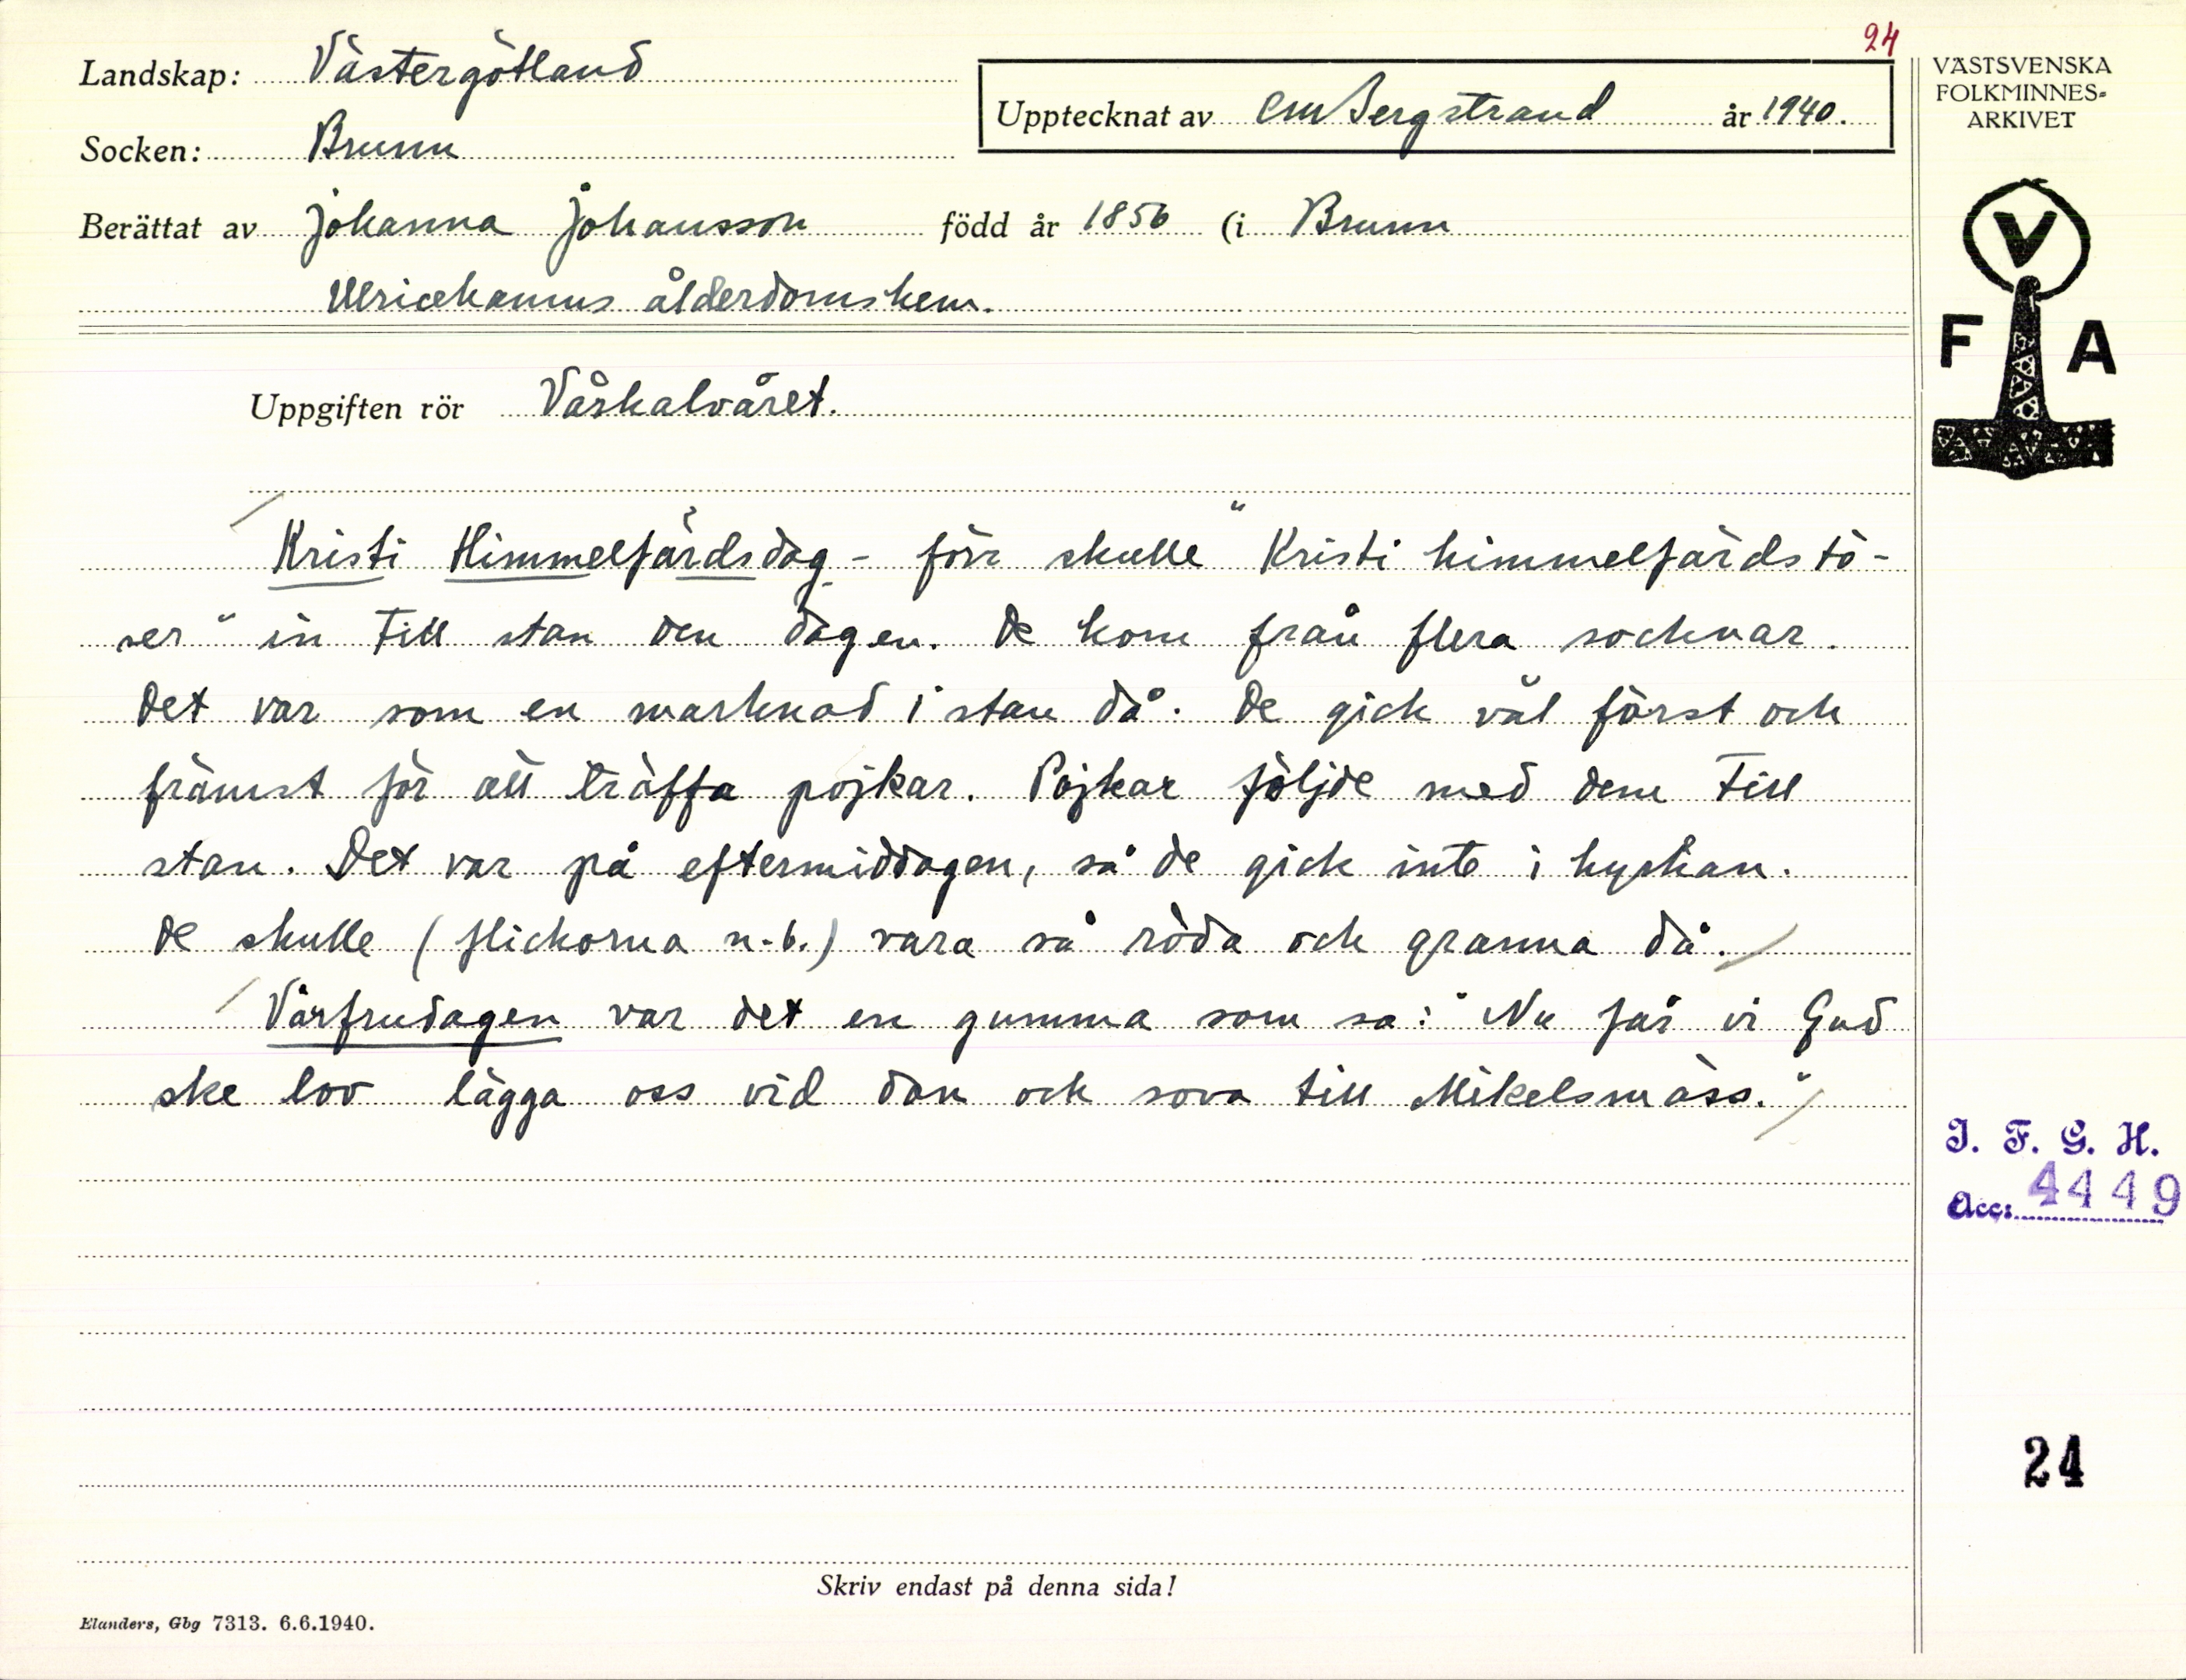 24
Landskap: Västergötland
Socken: Brunn
Upptecknat av CMBergstrand år 1940.
Berättat av Johanna Johansson född år 1856 (i Brunn
Ulricehamns ålderdomshem.
VÄSTSVENSKA
FOLKMINNES-
ARKIVET
V
F A
Uppgiften rör Våskalvåret.
Kristi Himmelfärdsdag - förr skulle "Kristi himmelfärdstö-
ser" in till stan den dagen. De kom från flera socknar.
Det var som en marknad i stan då. De gick väl först och
främst för att träffa pojkar. Pojkar följde med dem till
stan. Det var på eftermiddagen, så de gick inte i kyrkan.
De skulle (flickorna n.b.) vara så röda och granna då.
Vårfrudagen var det en gumma som sa: "Nu får vi Gud
ske lov lägga oss vid dan och sova till Mikelsmäss."
I. F. G. H.
Acc: 4449
24
Skriv endast på denna sida!
Elanders, Gbg 7313. 6.6.1940.